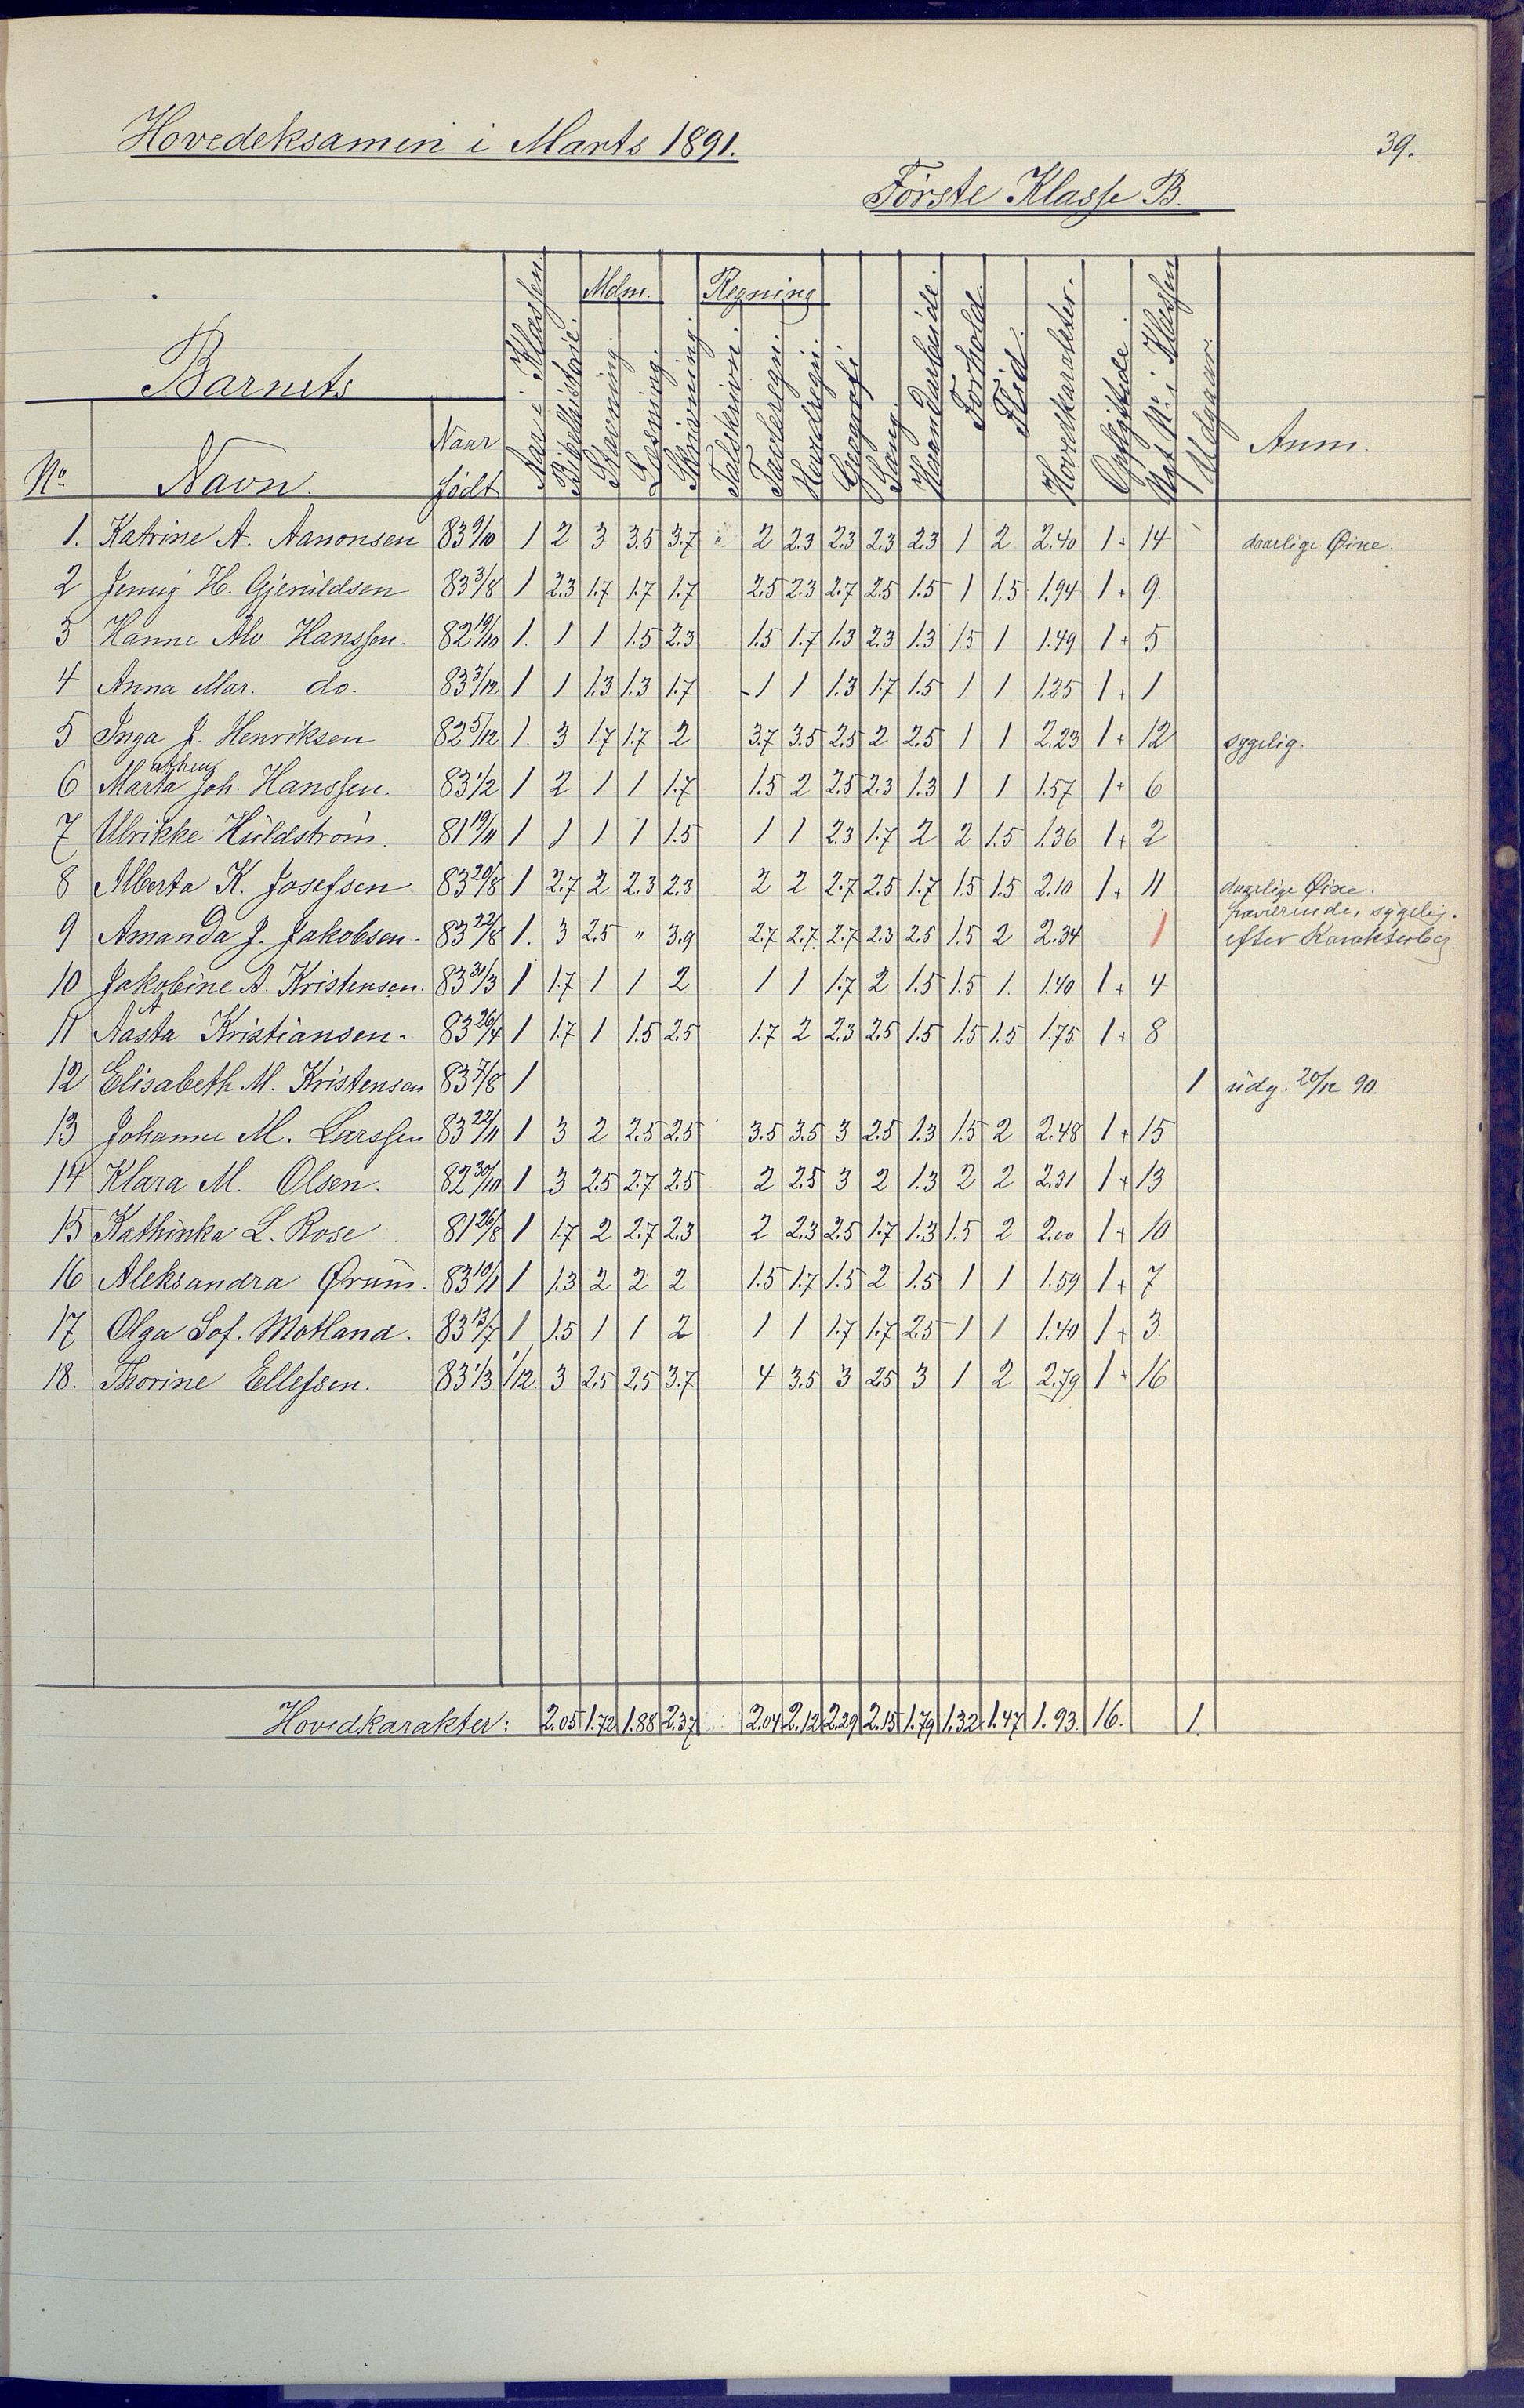 Hovedeksamen i Marts 1891.
39.
Første Klasse B.
Barnets
No. Navn. Naar født Aar i Klassen Bibelhistorie. Mdm. Stavning. Læsning. Skrivning. Regning Talskrivn. Tavleregn. Hovedregn. Geografi. Sang. Haandarbeide. Forhold. Flid. Hovedkarakter. Opflyttede. Opf. Nr. i Klassen Udgaar. Anm.
1. Katrine A. Aanonsen 83 9/10 1 2 3 3.5 3.7 " 2 2.3 2.3 2.3 2.3 1 2 2.40 1 + 14 daarlige Øine.
2 Jenny H. Gjeruldsen 83 3/8 1 2.3 1.7 1.7 1.7 2.5 2.3 2.7 2.5 1.5 1 1.5 1.94 1 + 9
3 Hanne Alv. Hanssen. 82 19/10 1. 1 1 1.5 2.3 1.5 1.7 1.3 2.3 1.3 1.5 1 1.49 1 + 5
4 Anna Mar. do. 83 3/12 1 1 1.3 1.3 1.7 1 1 1.3 1.7 1.5 1 1 1.25 1 + 1
5 Inga J. Henriksen 82 5/12 1. 3 1.7 1.7 2 3.7 3.5 2.5 2 2.5 1 1 2.23 1 + 12 sygelig.
6 Marta Joh. Hanssen. 83 1/2 1 2 1 1 1.7 1.5 2 2.5 2.3 1.3 1 1 1.57 1 + 6
7 Ulrikke Huldstrøm. 81 19/11 1 1 1 1 1.5 1 1 2.3 1.7 2 2 1.5 1.36 1 + 2
8 Alberta K. Josefsen 83 20/8 1 2.7 2 2.3 2.3 2 2 2.7 2.5 1.7 1.5 1.5 2.10 1 + 11 daarlige Øine.
9 Amanda J. Jakobsen. 83 22/8 1. 3 2.5 " 3.9 2.7 2.7 2.7 2.3 2.5 1.5 2 2.34 1 fraværende, sygelig.
efter Karakterbog.
10 Jakobine A. Kristensen. 83 31/3 1 1.7 1 1 2 1 1 1.7 2 1.5 1.5 1. 1.40 1 + 4
11 Aasta Kristiansen. 83 26/4 1 1.7 1 1.5 2.5 1.7 2 2.3 2.5 1.5 1.5 1.5 1.75 1 + 8
12 Elisabeth M. Kristensen 83 7/8 1 1 udg. 20/12 90.
13 Johanne M. Larssen 83 22/11 1 3 2 2.5 2.5 3.5 3.5 3 2.5 1.3 1.5 2 2.48 1 + 15
14 Klara M. Olsen. 82 30/10 1 3 2.5 2.7 2.5 2 2.5 3 2 1.3 2 2 2.31 1 + 13
15 Kathinka L. Rose 81 26/8 1 1.7 2 2.7 2.3 2 2.3 2.5 1.7 1.3 1.5 2 2.00 1 + 10
16 Aleksandra Ørum. 83 10/1 1 1.3 2 2 2 1.5 1.7 1.5 2 1.5 1 1 1.59 1 + 7
17 Olga Sof. Motland. 83 13/7 1 1.5 1 1 2 1 1 1.7 1.7 2.5 1 1 1.40 1 + 3.
18. Thorine Ellefsen. 83 1/3 1/12 3 2.5 2.5 3.7 4 3.5 3 2.5 3 1 2 2.79 1 + 16
Hovedkarakter: 2.05 1.72 1.88 2.37 2.04 2.12 2.29 2.15 1.79 1.32 1.47 1.93. 16. 1.